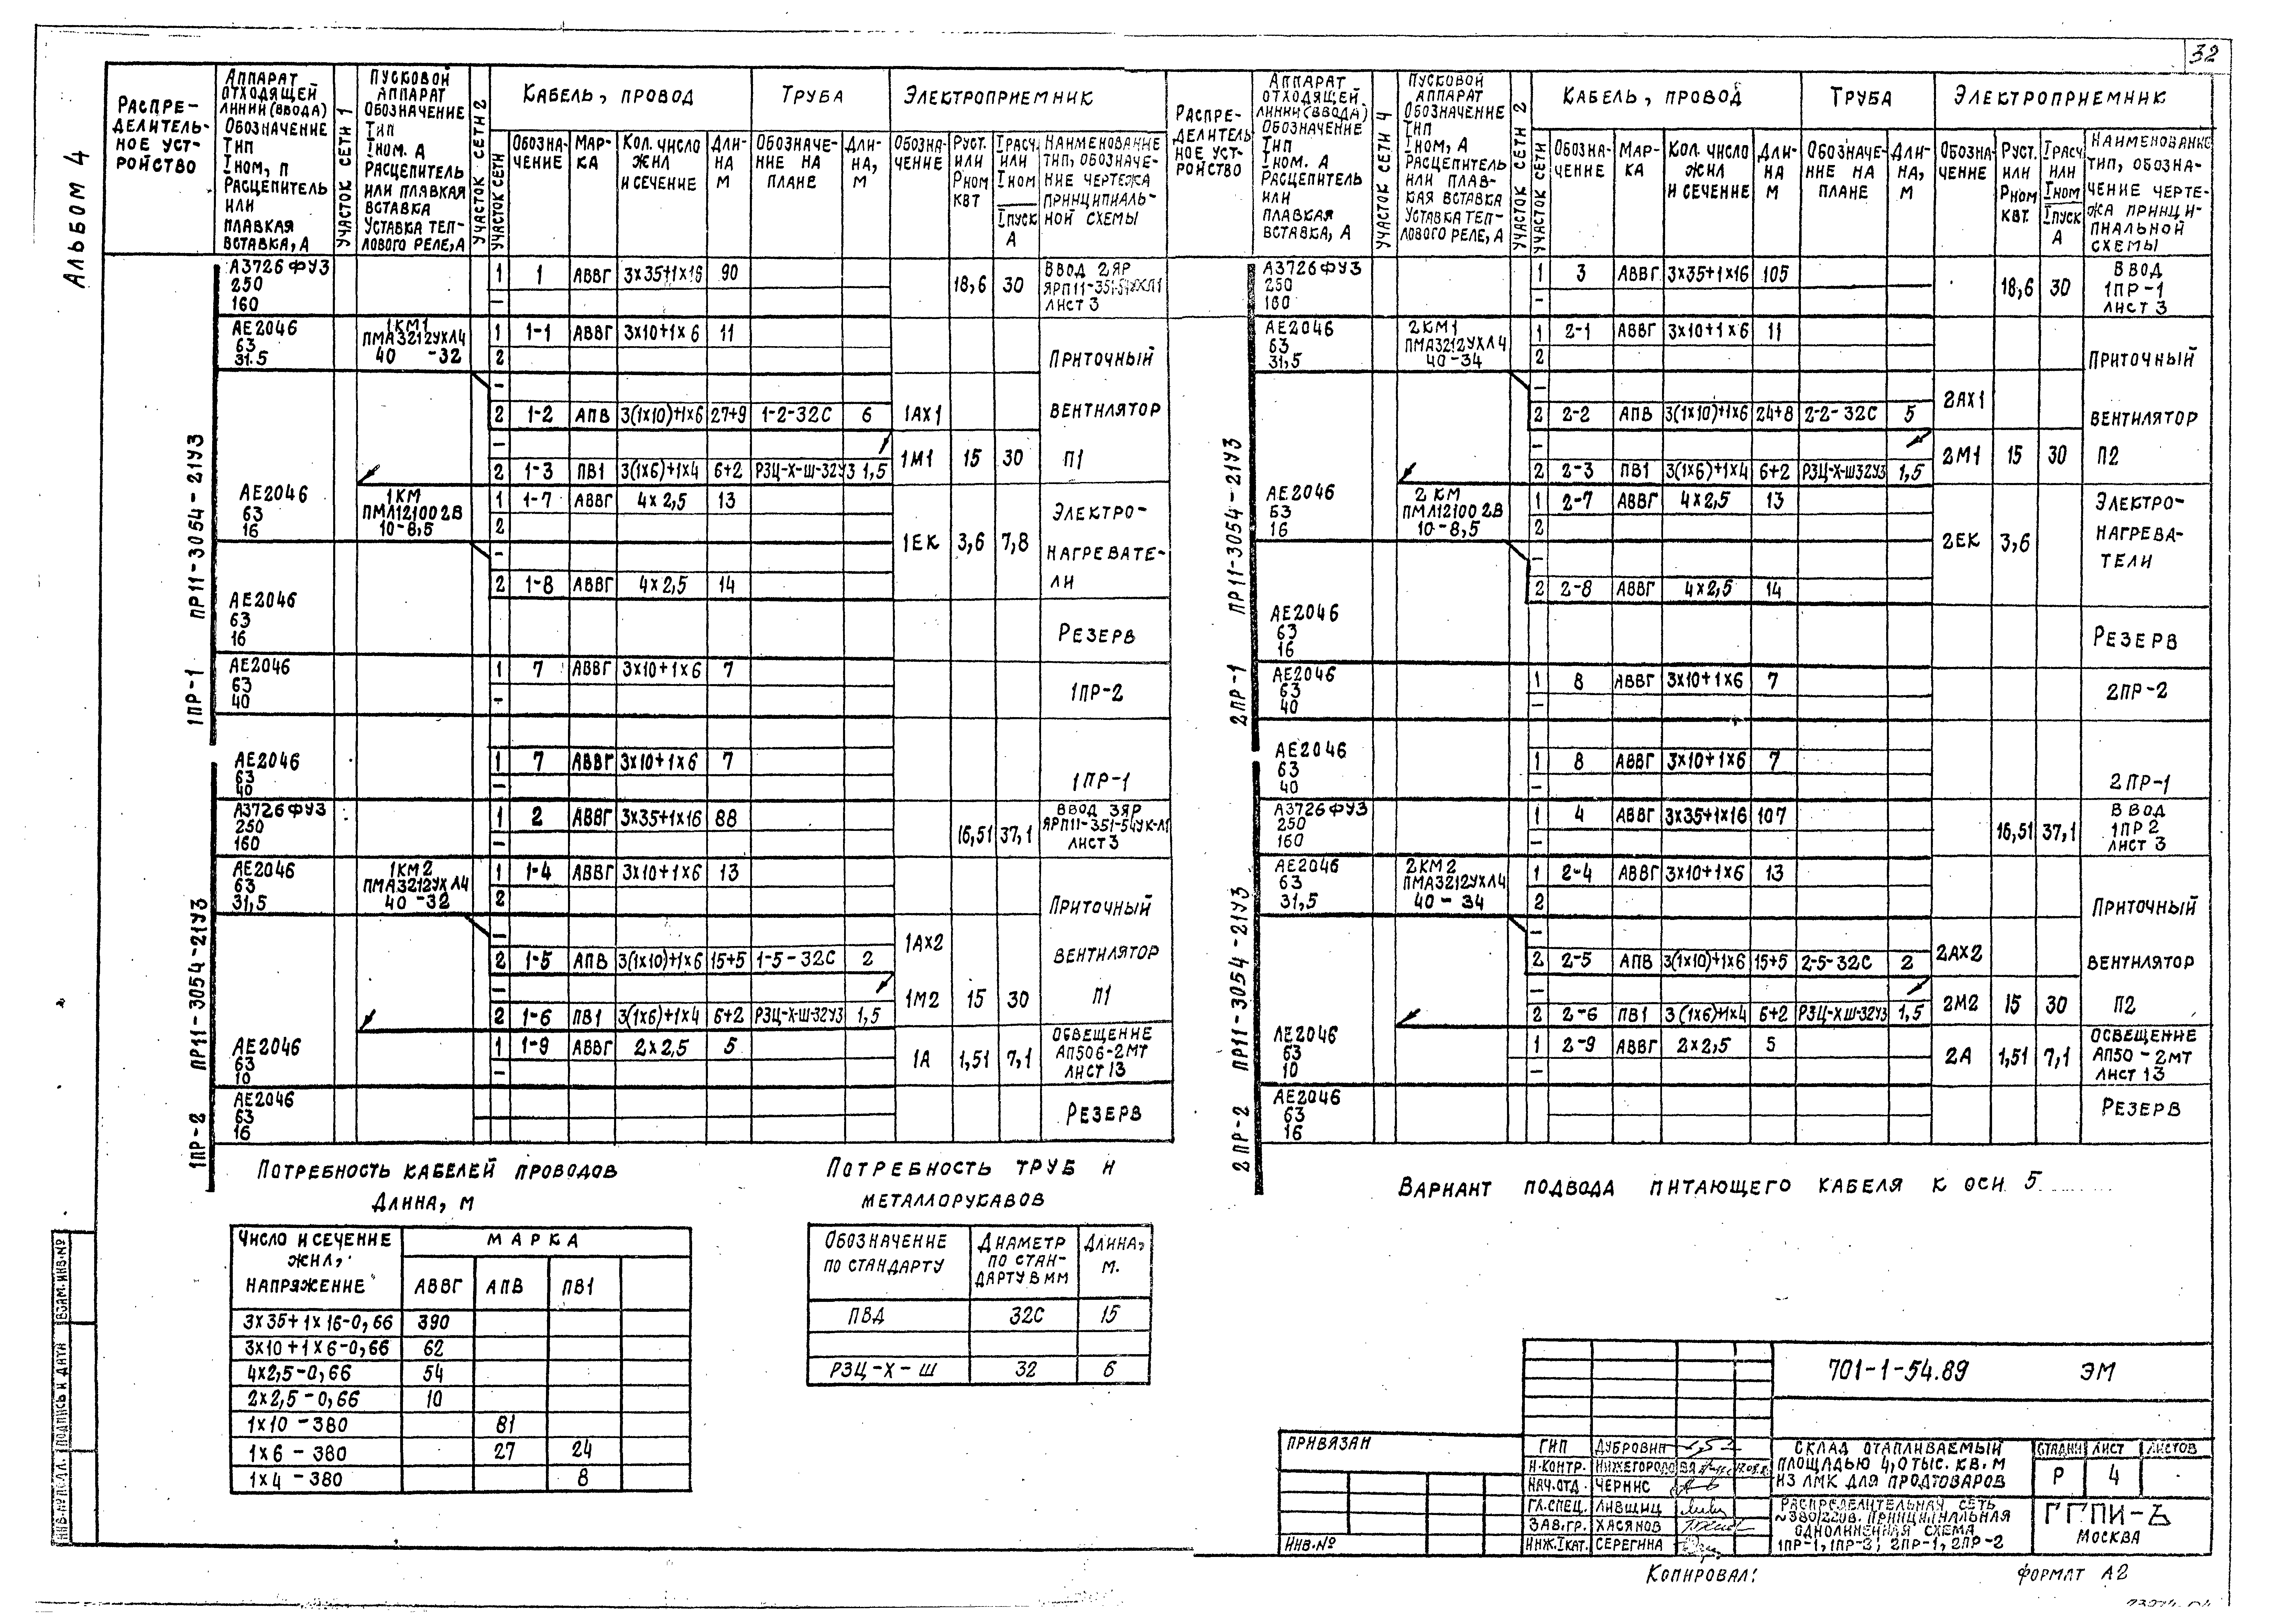 32
Альбом 4
Распре-
делитель-
ное уст-
ройство
Аппарат
отходящей
линии (ввода)
Обозначение
Тип
Iном, П
Расцепитель
или
плавкая
вставка, А
Участок сети 1
Пусковой
аппарат
Обозначение
Тип
Iном. А
Расцепитель
или плавкая
вставка
Уставка теп-
лового реле, А
Участок сети 2
Участок сети
Кабель, провод
Труба
Электроприемник
Обозна-
чение
Мар-
ка
Кол. число
жил
и сечение
Дли-
на
м
Обозначе-
ние на
плане
Дли-
на,
м
Обозна-
чение
Руст.
или
Рном
квт
Iрасч.
или
Iном
Iпуск
А
Наименование
тип, обозначе-
ние чертежа
принципиаль-
ной схемы
1ПР-1 ПР11-3054-21У3
А3726ФУ3
250
160
1 1 АВВГ 3х35+1х16 90
18,6 30
Ввод 2ЯР
лист 3
АЕ2046
63
31.5
1КМ1
ПМА3212УХЛ4
40 -32
1 1-1 АВВГ 3х10+1х6 11
2
2 1-2 АПВ 3(1х10)+1х6 27+9 1-2-32С 6 1АХ1
2 1-3 ПВ1 3(1х6)+1х4 6+2 РЗЦ-Х-Ш-32У3 1,5
1М1 15 30
Приточный
вентилятор
П1
АЕ2046
63
16
1КМ
ПМЛ121002В
10-8,5
1 1-7 АВВГ 4х2,5 13
2
1ЕК 3,6 7,8
2 1-8 АВВГ 4х2,5 14
Электро-
нагревате-
ли
АЕ2046
63
16
Резерв
АЕ2046
63
40
1 7 АВВГ 3х10+1х6 7
1ПР-2
1ПР-2 ПР11-3054-21У3
АЕ2046
63
40
1 7 АВВГ 3х10+1х6 7
1ПР-1
А3726ФУ3
250
160
1 2 АВВГ 3х35+1х16 88
16,51 37,1
Ввод 3ЯР
ЯРП11-351-54УХЛ1
лист 3
АЕ2046
63
31,5
1КМ2
ПМА3212УХЛ4
40 -32
1 1-4 АВВГ 3х10+1х6 13
2
2 1-5 АПВ 3(1х10)+1х6 15+5 1-5-32С 2 1АХ2
2 1-6 ПВ1 3(1х6)+1х4 6+2 РЗЦ-Х-Ш-32У3 1,5
1М2 15 30
Приточный
вентилятор
П1
АЕ2046
63
10
1 1-9 АВВГ 2х2,5 5
1А 1,51 7,1
Освещение
АП50б-2МТ
лист 13
АЕ2046
63
16
Резерв
Распре-
делитель
ное уст-
ройство
Аппарат
отходящей
линии (ввода)
Обозначение
Тип
Iном. А
Расцепитель
или
плавкая
вставка, А
Участок сети 1
Пусковой
аппарат
Обозначение
Тип
Iном, А
Расцепитель
или плав-
кая вставка
Уставка теп-
лового реле, А
Участок сети 2
Участок сети
Кабель, провод
Труба
Электроприемник
Обозна-
чение
Мар-
ка
Кол. число
жил
и сечение
Дли-
на
м
Обозначе-
ние на
плане
Дли-
на,
м
Обозна-
чение
Руст.
или
Рном
квт.
Iрасч
или
Iном
Iпуск
А
Наименование
тип, обозна-
чение черте-
жа принци-
пиальной
схемы
2ПР-1 ПР11-3054-21У3
А3726ФУ3
250
160
1 3 АВВГ 3х35+1х16 105
18,6 30
Ввод
1ПР-1
лист 3
АЕ2046
63
31,5
2КМ1
ПМА3212УХЛ4
40-34
1 2-1 АВВГ 3х10+1х6 11
2
2 2-2 АПВ 3(1х10)+1х6 24+8 2-2-32С 5 2АХ1
2 2-3 ПВ1 3(1х6)+1х4 6+2 РЗЦ-Х-Ш32У3 1,5
2М1 15 30
Приточный
вентилятор
П2
АЕ2046
63
16
2КМ
ПМЛ121002В
10-8,5
1 2-7 АВВГ 4х2,5 13
2
2ЕК 3,6
2 2-8 АВВГ 4х2,5 14
Электро-
нагрева-
тели
АЕ2046
63
16
Резерв
АЕ2046
63
40
1 8 АВВГ 3х10+1х6 7
2ПР-2
2ПР-2 ПР11-3054-21У3
АЕ2046
63
40
1 8 АВВГ 3х10+1х6 7
2ПР-1
А3726ФУ3
250
160
1 4 АВВГ 3х35+1х16 107
16,51 37,1
Ввод
1ПР2
лист 3
АЕ2046
63
31,5
2КМ2
ПМА3212УХЛ4
40-34
1 2-4 АВВГ 3х10+1х6 13
2
2 2-5 АПВ 3(1х10)+1х6 15+5 2-5-32С 2 2АХ2
2 2-6 ПВ1 3(1х6)+1х4 6+2 РЗЦ-Х-Ш-32У3 1,5
2М2 15 30
Приточный
вентилятор
П2
АЕ2046
63
10
1 2-9 АВВГ 2х2,5 5
2А 1,51 7,1
Освещение
АП50-2МТ
лист 13
АЕ2046
63
16
Резерв
Потребность кабелей проводов
Длина, м
Число и сечение
жил,
напряжение
Марка
АВВГ АПВ ПВ1
3х35+1х16-0,66 390
3х10+1х6-0,66 62
4х2,5-0,66 54
2х2,5-0,66 10
1х10-380 81
1х6-380 27 24
1х4-380 8
Потребность труб и
металлорукавов
Обозначение
по стандарту
Диаметр
по стан-
дарту в мм
Длина,
м.
ПВД 32С 15
РЗЦ-Х-Ш 32 6
Вариант подвода питающего кабеля к оси 5
Привязан
Инв.№
701-1-54.89 ЭМ
ГИП Дубровин
Н.контр. Нижегородова
Нач.отд. Чернис
Гл.спец. Лившиц
Зав.гр. Хасянов
Инж.Iкат. Серегина
Склад отапливаемый
площадью 4,0 тыс. кв. м
из ЛМК для продтоваров
Стадия Лист Листов
Р 4
Распределительная сеть
~380/220в. Принципиальная
однолинейная схема
1ПР-1, 1ПР-2, 2ПР-1, 2ПР-2
Москва
Инв.№ подл.
Подпись и дата
Взам.инв.№
Копировал:
Формат А2